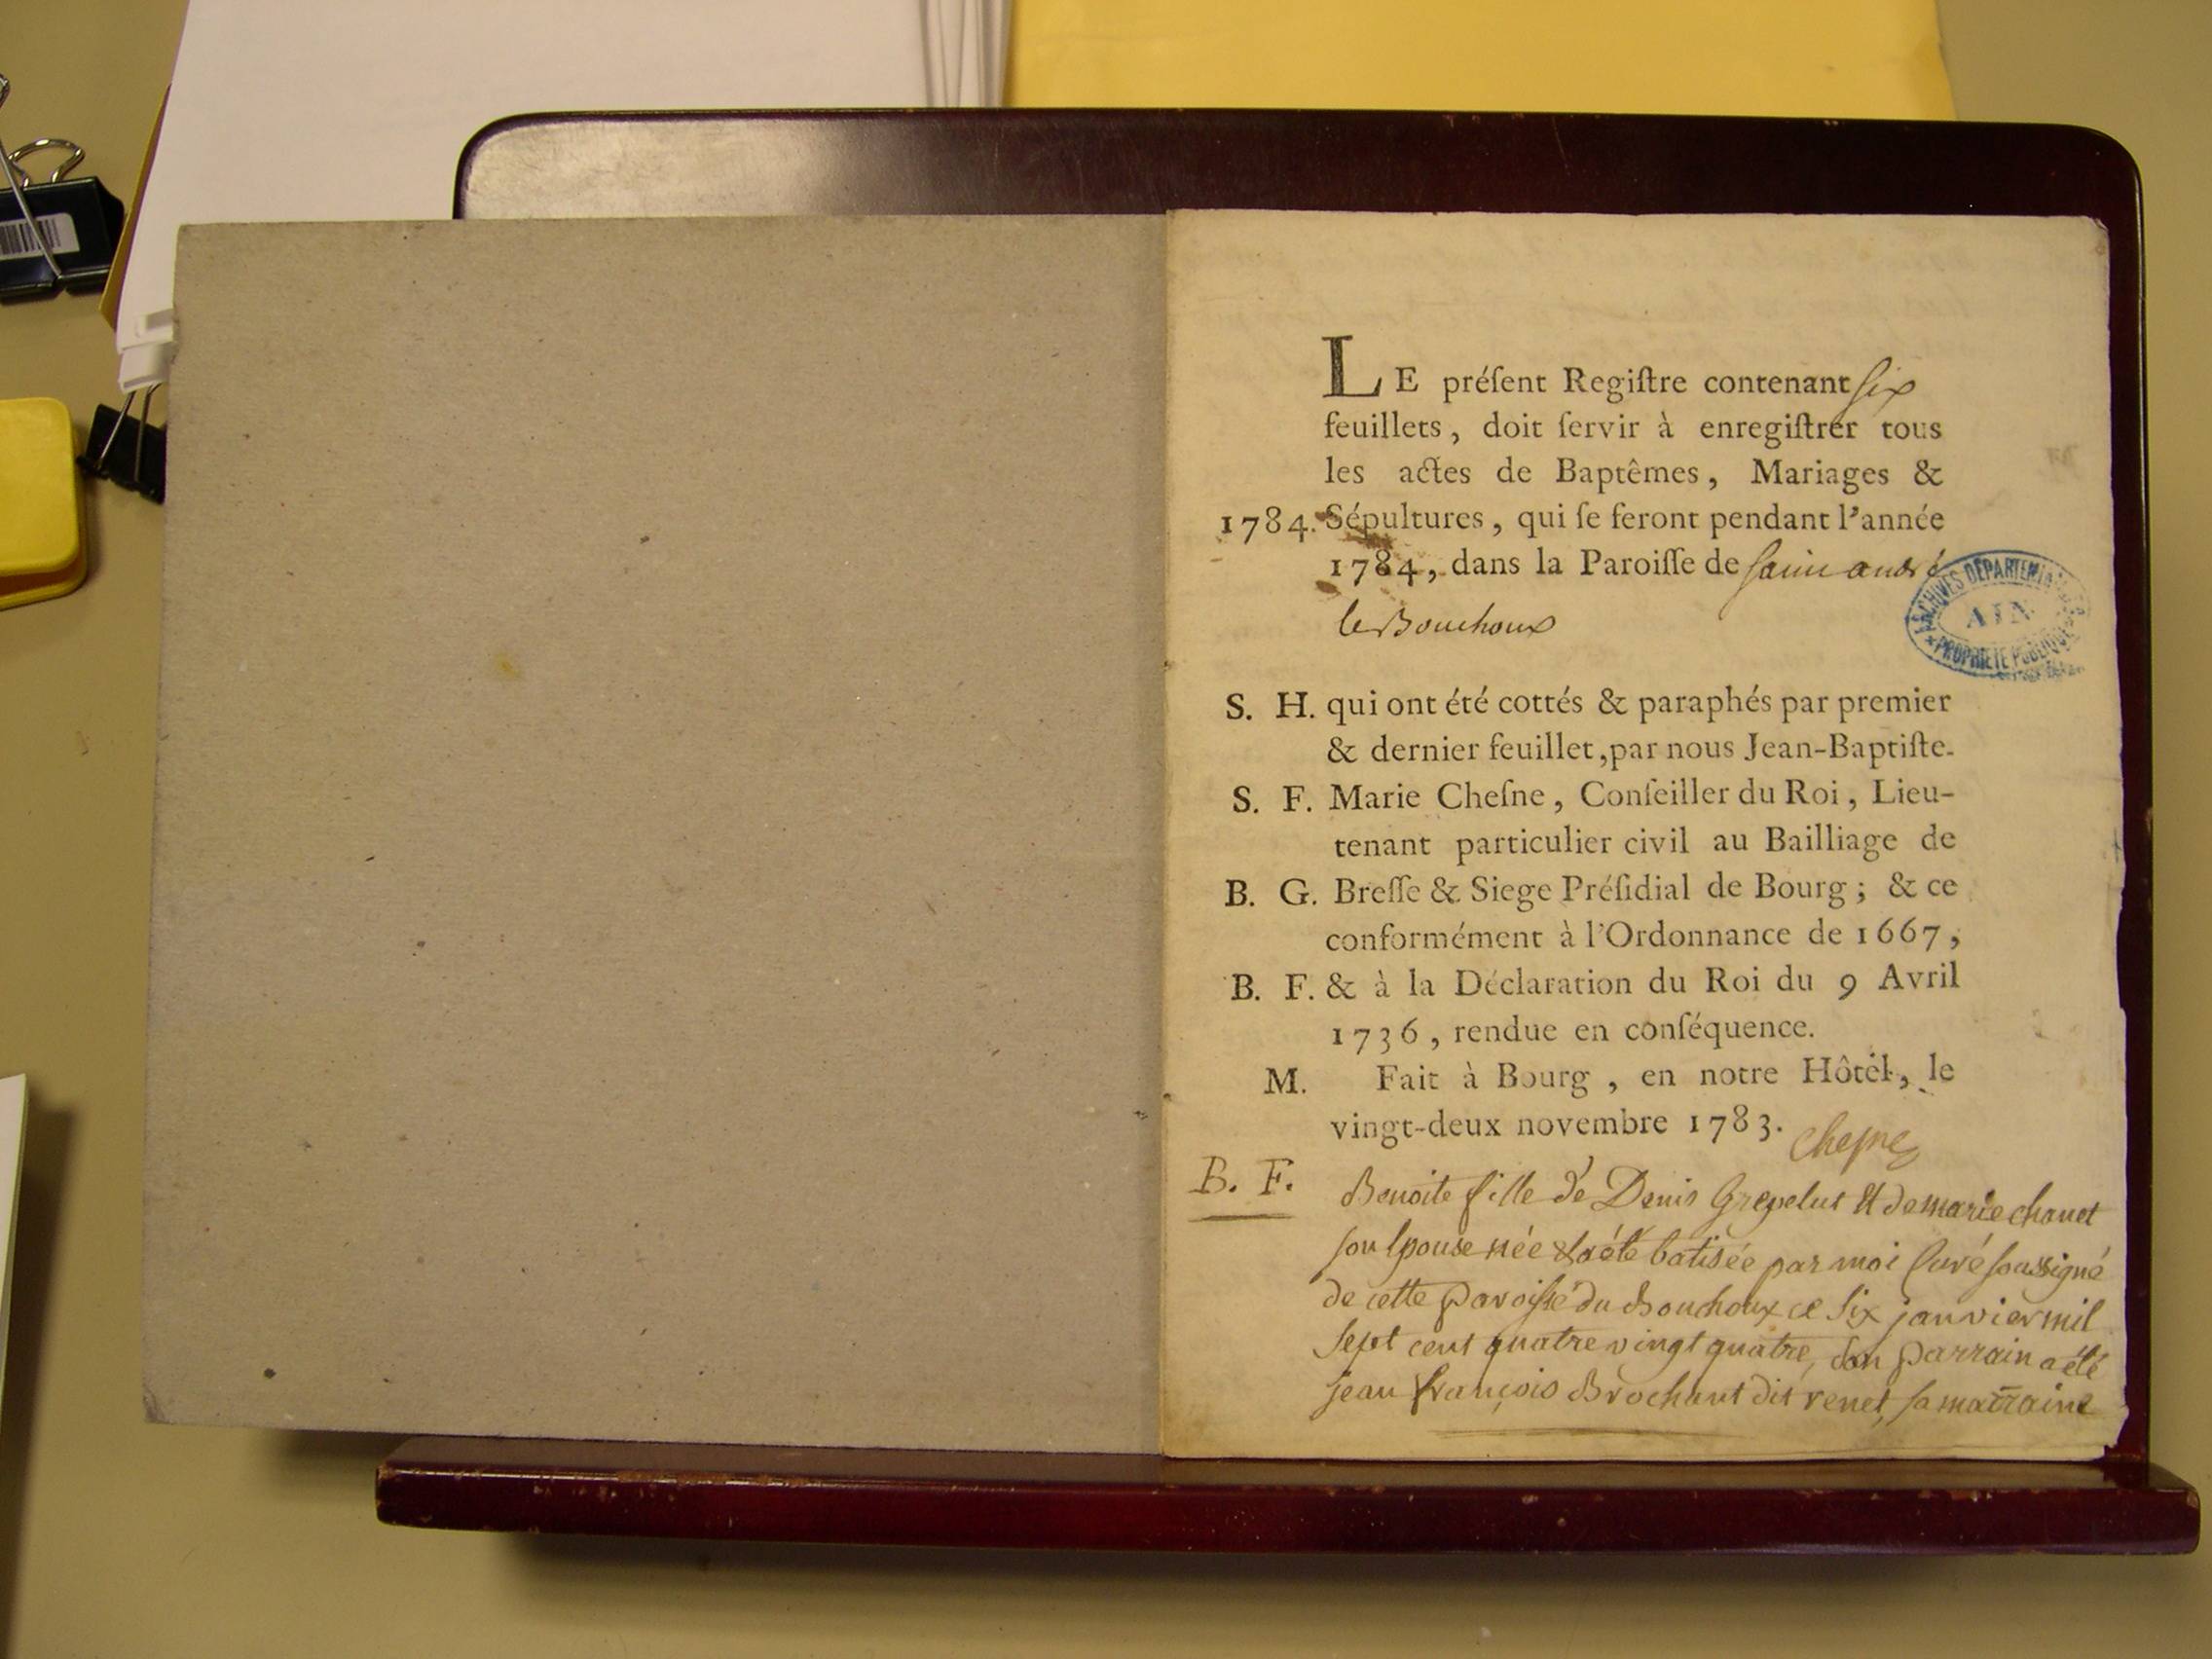 LE préſent Regiſtre contenant six
feuillets, doit ſervir à enregiſtrer tous
les actes de Baptêmes, Mariages &
1784. Sépultures, qui ſe feront pendant l'année
1784, dans la Paroiſſe de saint andré
le Bouchoux
ARCHIVES DÉPARTEMENTALES
AIN
PROPRIÉTÉ PUBLIQUE
S. H. qui ont été cottés & paraphés par premier
& dernier feuillet, par nous Jean-Baptiſte-
S. F. Marie Cheſne, Conſeiller du Roi, Lieu-
tenant particulier civil au Bailliage de
B. G. Breſſe & Siege Préſidial de Bourg; & ce
conformément à l'Ordonnance de 1667,
B. F. & à la Déclaration du Roi du 9 Avril
1736, rendue en conſéquence.
M. Fait à Bourg, en notre Hôtel, le
vingt-deux novembre 1783. Chesne
B. F. Benoite fille de Denis Grepelut Et de marie chanet
son Epouse née & a été batisée par moi Curé soussigné
de cette paroisse du Bouchoux ce Six janvier mil
Sept cent quatre vingt quatre, son parrain a été
jean françois Brochant dit renet, sa marraine